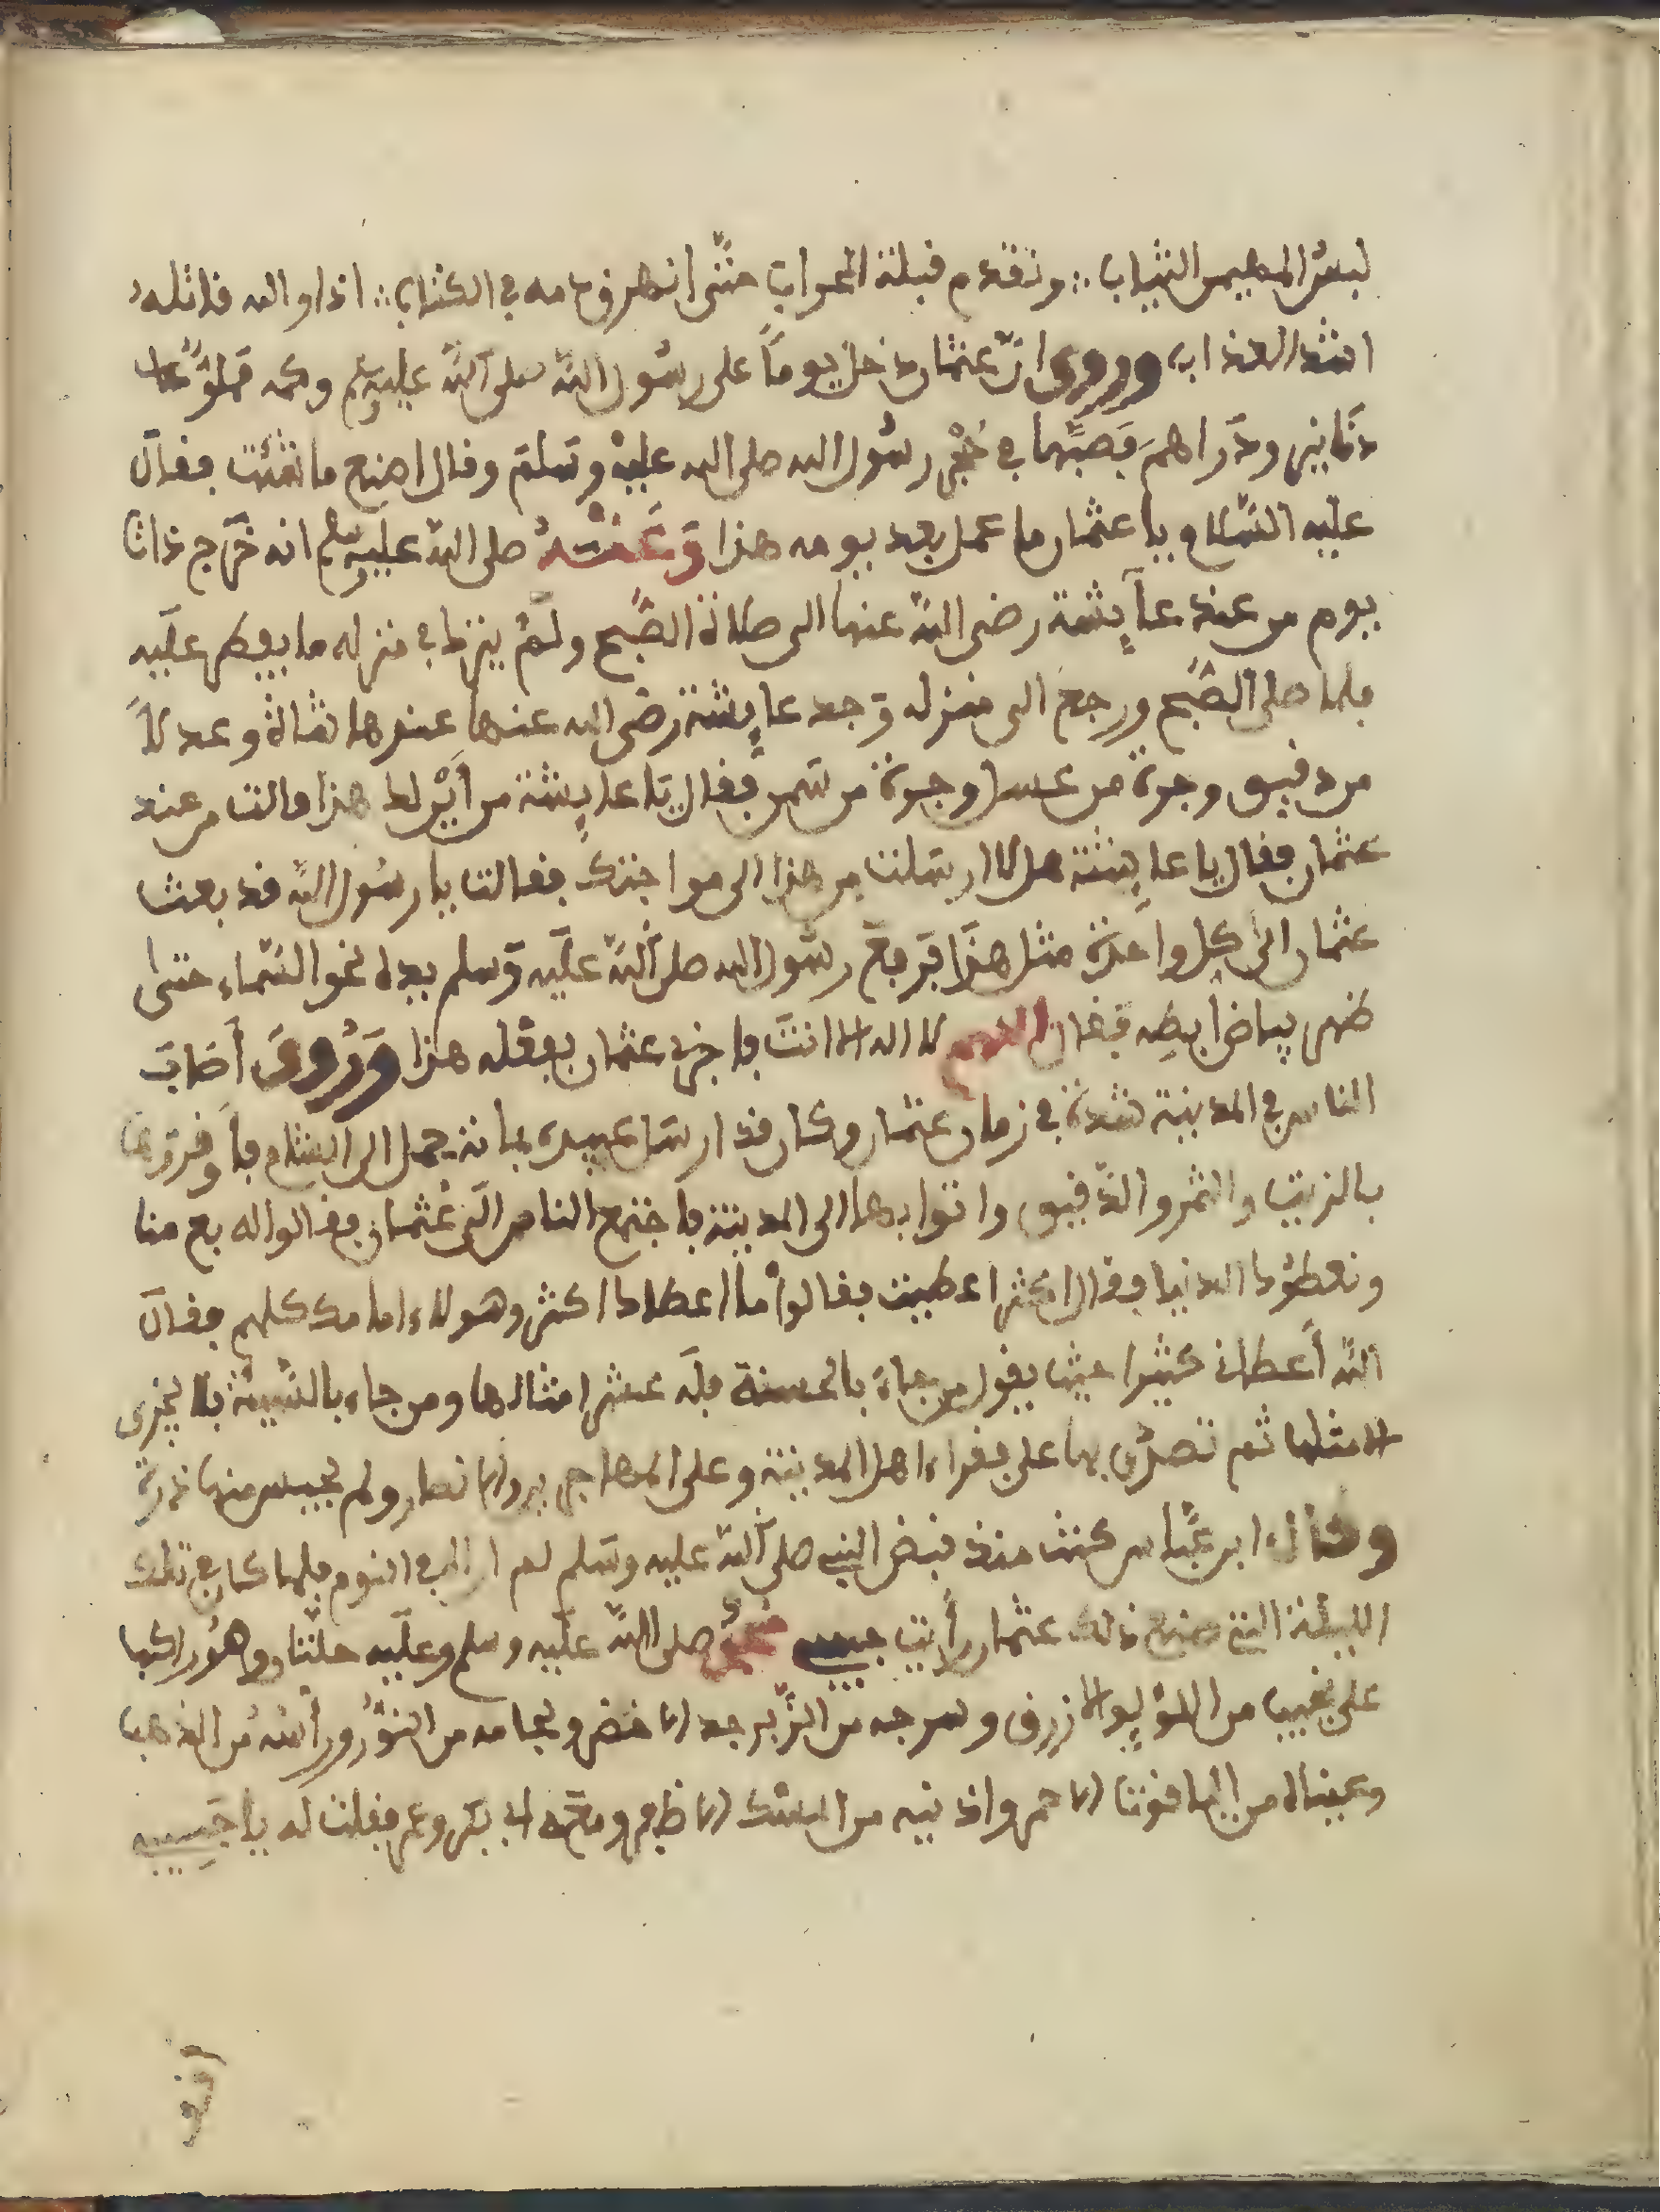 لبس المهيمن الثياب ؞ وتقدم قبلة المحراب حتى انهرق دمه في الكتاب ؞ اذاو الله قاتله
اشد العذاب وروى انّ عثمان دخل يوماً على رسول اللّه صلى اللّه عليه وسلم وكمه مملوّءًا
دنانير ودراهم فصبها في حجر رسول الله صلى الله عليه وسلم وقال اصنع ما شئت فقال
عليه السّلام يا عثمان ما عمل بعد يومه هذا وَعَنْهُ صلى اللّه عليه وسلم انه خرج ذات
يوم من عند عآئشة رضى اللّه عنها الى صلاة الصّبح ولم يترك في منزله ما يفطر عليه
فلما صلى الصّبح ورجع الى منزله وجد عائشة رضى الله عنها عندها شاة وعدلاً
من دقيق وجرة من عسل وجرة من سمن فقال يا عائشة من أَيْن لك هذا قالت من عند
عثمان فقال يا عائشة هل لا ارسلت من هذا الى صواحبتك فقالت يا رسول اللّه قد بعث
عثمان الى كل واحدة مثل هذا فرفع رسول الله صلى اللّه عليه وسلم يده نحو السّماء حتى
ظهر بياض ابطه فقال اللهم لا اله الا انت فاجزِ عثمان بفعله هذا وَرُوِىَ أصاب
الناس في المدينة شدة في زمان عثمان وكان قد ارسل عبيده بمائة جمل الى الشام فأوقروها
بالزيت والتمر والدّقيق واتوا بها الى المدينة فاجتمع الناس الى عثمان فقالوا له بع منا
ونعطوك الدنيا فقال اكثر اعطيت فقالوا ما اعطاك اكثر وهولاء امامك كلهم فقال
اللّه أعطاني كثيرا حيث يقول من جاء بالحسنة فله عشر امثالها ومن جاء بالسّيئة فلا يجزى
الا مثلها ثم تصدّق بها على فقراء اهل المدينة وعلى المهاجرين والانصار ولم يحبس منها ذرة
وقال ابن عبّاس كنت منذ قبض النبي صلى اللّه عليه وسلم لم اراه في النوم فلما كان في تلك
الليلة التي صنع ذلك عثمان رأيت حبيبي محمّد صلى اللّه عليه وسلم وعليه حلتان وهو راكب
على نجيب من اللؤلؤ الازرق وسرجه من الزّبرجد الاخضر ولجامه من النّور ورأسه من الذهب
وعيناه من الياقوت الاحمر واذنيه من المسك الاظفر ومعه ابي بكر وعمر فقلت له يا حبيبي
افنو